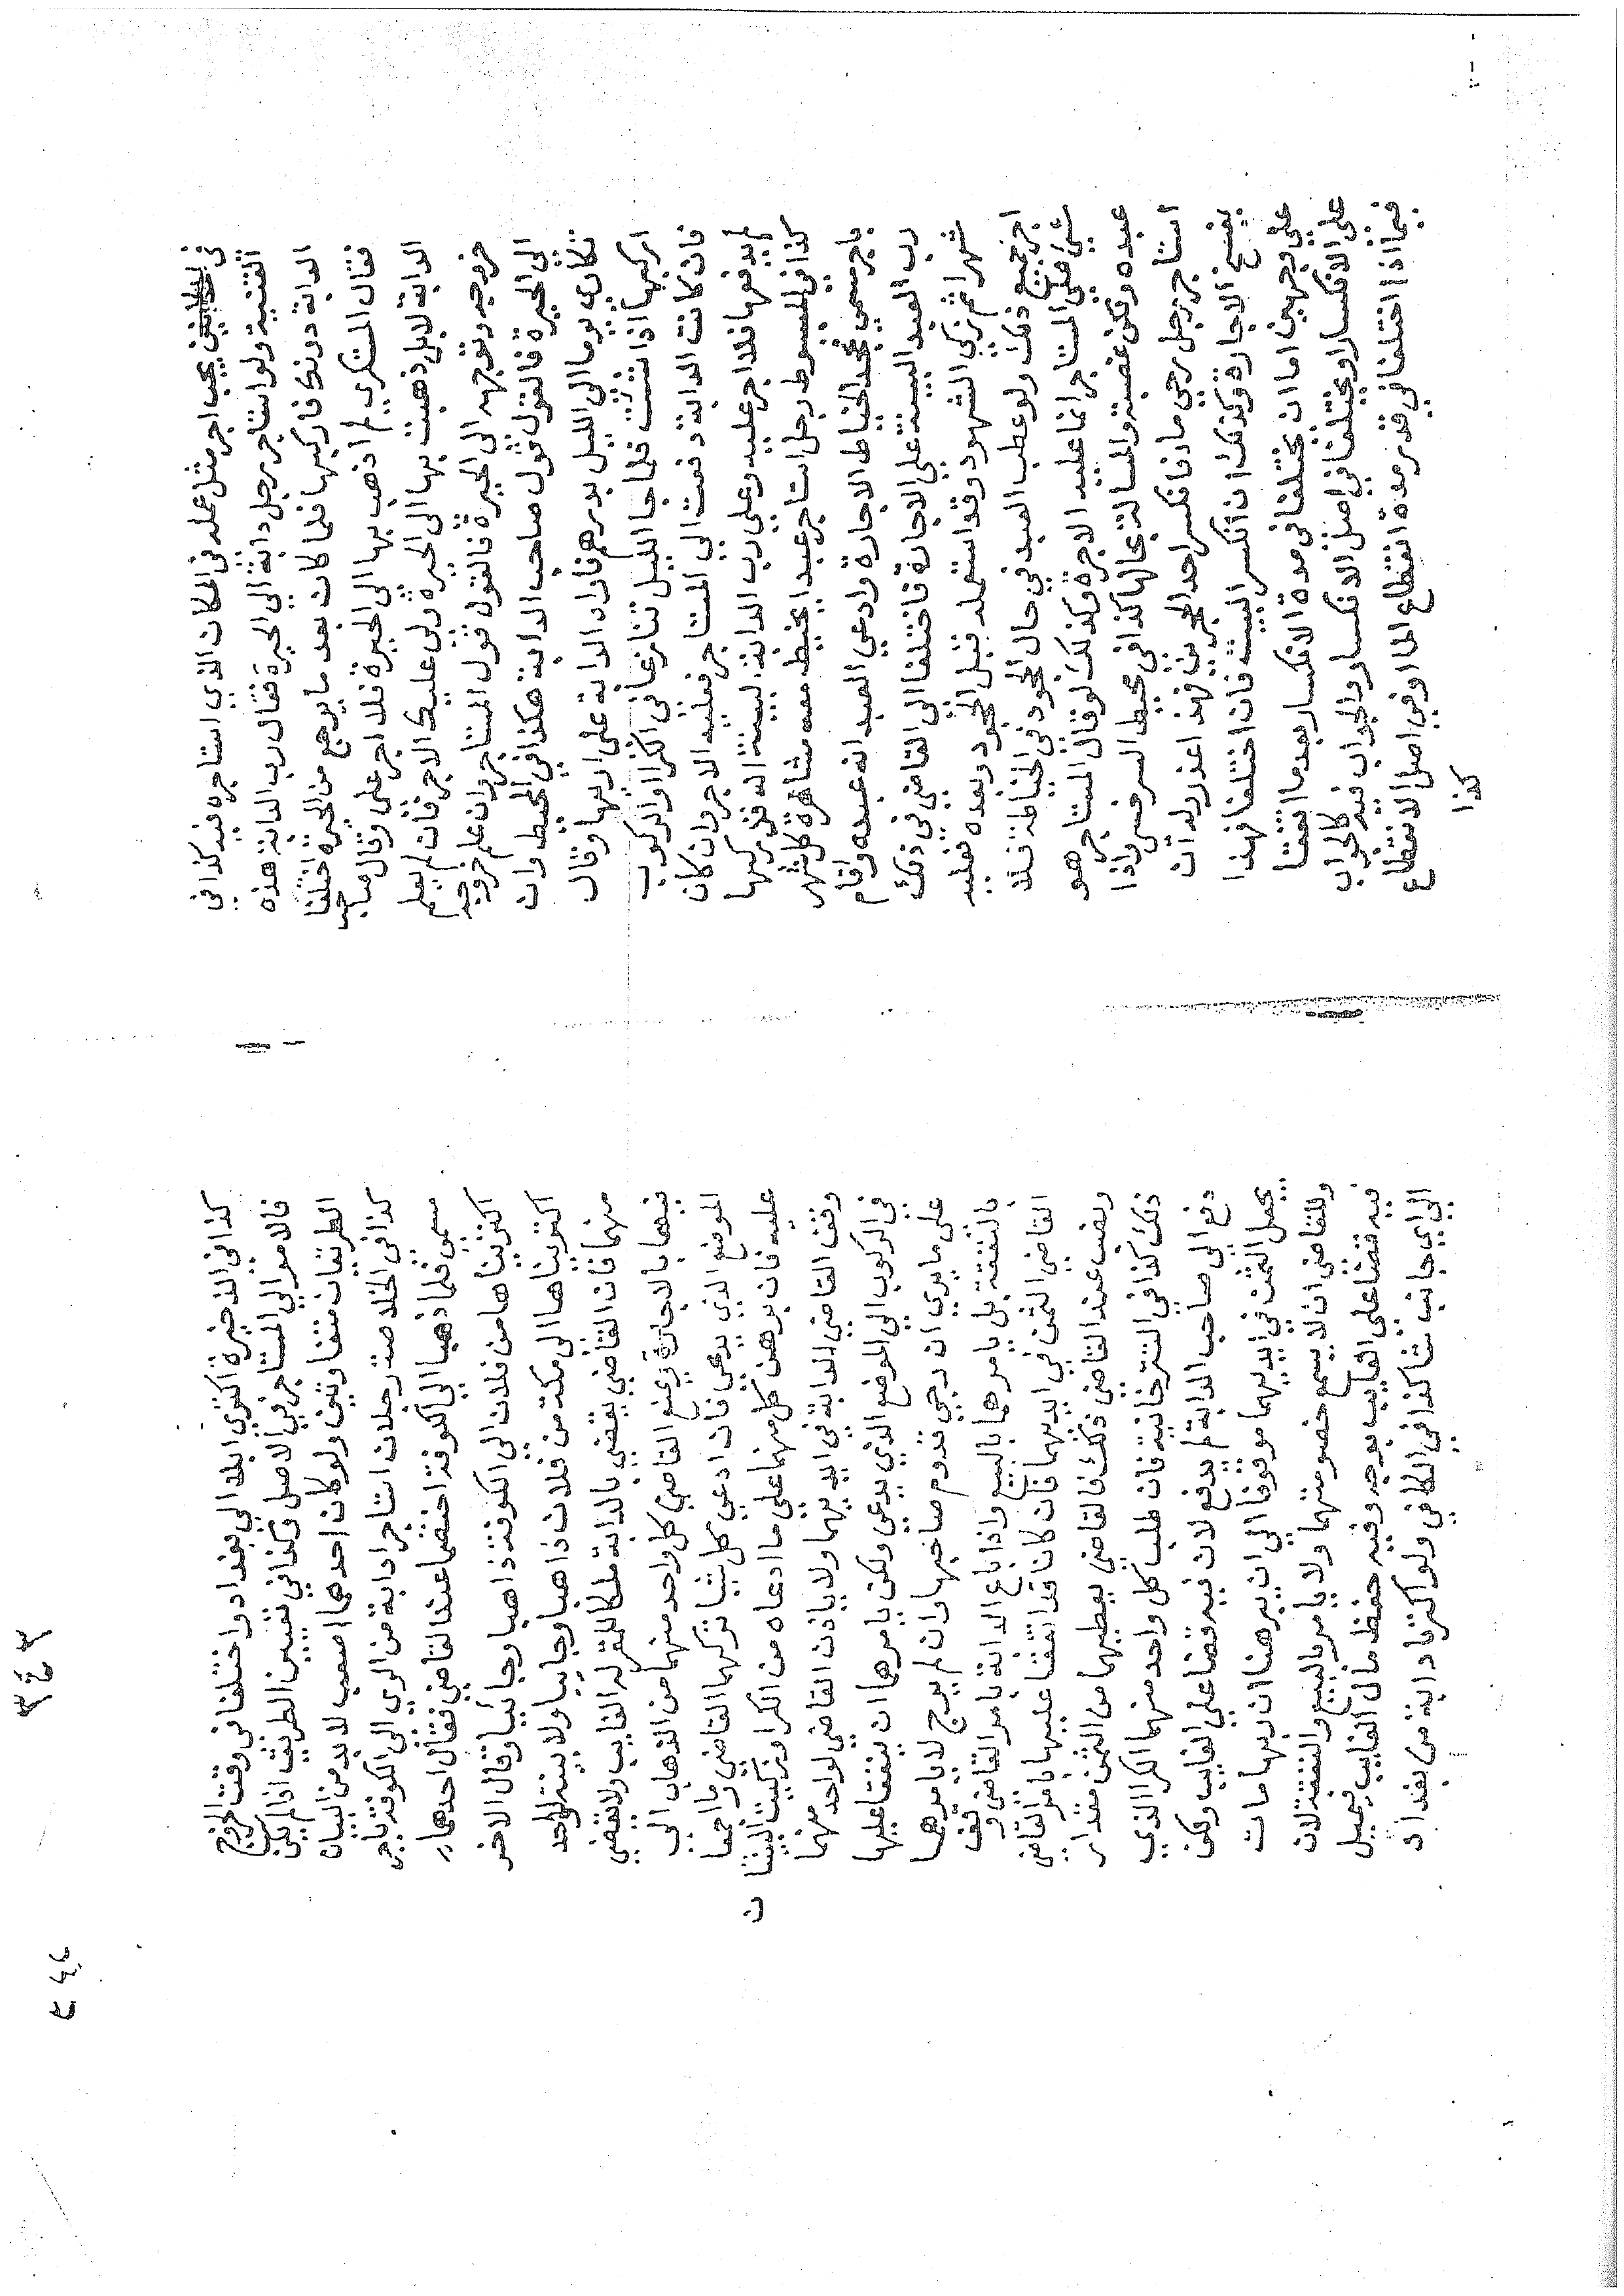 في لفظين يجب اجر مثل عمله في المكان الذي استاجره فيه كذا في
القنية ولو استاجر رجل دابة الي الحيرة فقال رب الدابة هذه
الدابة دونك فاركبها فلما كان بعد ما يرجع من الحيرة اختلفا
فقال المستكري لم اذهب بها الى الحيرة فلا اجر علي وقال صاحب
الدابة لابل ذهبت بها الى الحيرة ولي عليك الاجر فان لم يعلم
خروجه وتوجهه الى الحيرة فالقول قول المستاجر وان علم خروجه
الى الحيرة فالقول قول صاحب الدابة هكذا في المحيط وان
تكارى يوما الى الليل بدرهم فاراه الدابة على اريها وقال
اركبها اذا شئت فلما جا الليل تنازعا في الكرا والركوب
فان كانت الدابة دفعت الي المستاجر فعليه الاجر وان كان
لم يدفعها فلا اجر عليه وعلي رب الدابة البينة انه قد ركبها
كذا في المبسوط رجل استاجر عبدا يخيط معه مشاهرة كل شهر
باجر مسمي فجحد الخياط الاجارة وادعي العبد انه عبده واقام
رب العبد البينة علي الاجارة فاختلفا الى القاضي في ذلك
شهرا ثم زكي الشهود وقد استعمله قبل الجحود وبعده فعليه
اجر جميع ذلك ولو عطب العبد في حال الجحود في الخياطة فلا
شيئ على المستاجر انما عليه الاجرة وكذلك لو قال المستاجر هو
عبده ولكن غصبته والمسالة بحالها كذا في محيط السرخسي واذا
استاجر رجل رحي ما فانكسر احد الحجرين فهذا عذر وله ان
يفسخ الاجارة وكذلك ان انكسر البيت فان اختلفا فهذا
علي وجهين اما ان يختلفا في مدة الانكسار بعد ما اتفقا
على الانكسار او يختلفا في اصل الانكسار والجواب فيه كالجواب
فيما اذا اختلفا في قدر مدة انقطاع الما او في اصل الانقطاع
كذا
كذا في الذخيرة اكتري ابلا الى بغداد واختلفا في وقت الخروج
فالامر الي المستاجر في الاصل وكذا في تعيين الطريق اذا لم يكن
الطريقان متفاوتين ولو كان احدهما اصعب لابد من البيان
كذا في الخلاصة رجلان استاجرا دابة من الري الى الكوفة باجر
مسمى فلما ذهبا الى الكوفة اختصما عند القاضي فقال احدهما
اكترينا ها من فلان الي الكوفة ذاهبا وجائيا وقال الاخر
اكتريناها الى مكة من فلان ذاهبا وجائيا ولا بينة لواحد
منهما فان القاضي يقضي بالدابة ملكا للمقر له الغايب ولا يقضي
فيها بالاجارة ويمنع القاضي كل واحد منهما من الذهاب الى
الموضع الذي يدعي فان ادعي كل شيا تركهما القاضي وما اجمعا
عليه فان برهن كل منهما علي ما ادعاه من الكرا وزكيت البينتا
ن
وقف القاضي الدابة في ايديهما ولا ياذن القاضي لواحد منهما
في الركوب الي الموضع الذي يدعي ولكن يامرهما ان ينفقا عليها
على ما يري ان رجي قدوم صاحبها وان لم يرج لا يامرهما
بالنفقة بل يامرهما بالبيع واذا باع الدابة بامر القاضي وقف
القاضي الثمن في ايديهما فان كانا قد انفقا عليها بامر القاضي
وثبت عند القاضي ذلك فالقاضي يعطيهما من الثمن مقدار
ذلك كذا في التترخانية فان طلب كل واحد منهما الكرا الذي
دفع الى صاحب الدابة لم يدفع لان فيه قضا علي الغايب ولكن
يجعل الثمن في ايديهما موقوفا الي ان يبرهنا ان ربها مات
وللقاضي ان لا يسمع خصومتهما ولا يامر بالبيع والنفقة لان
فيه قضا على الغايب بوجه وفيه حفظ مال الغايب فيميل
الى اي جانب شا كذا في الكافي ولو اكتريا دابة من بغداد